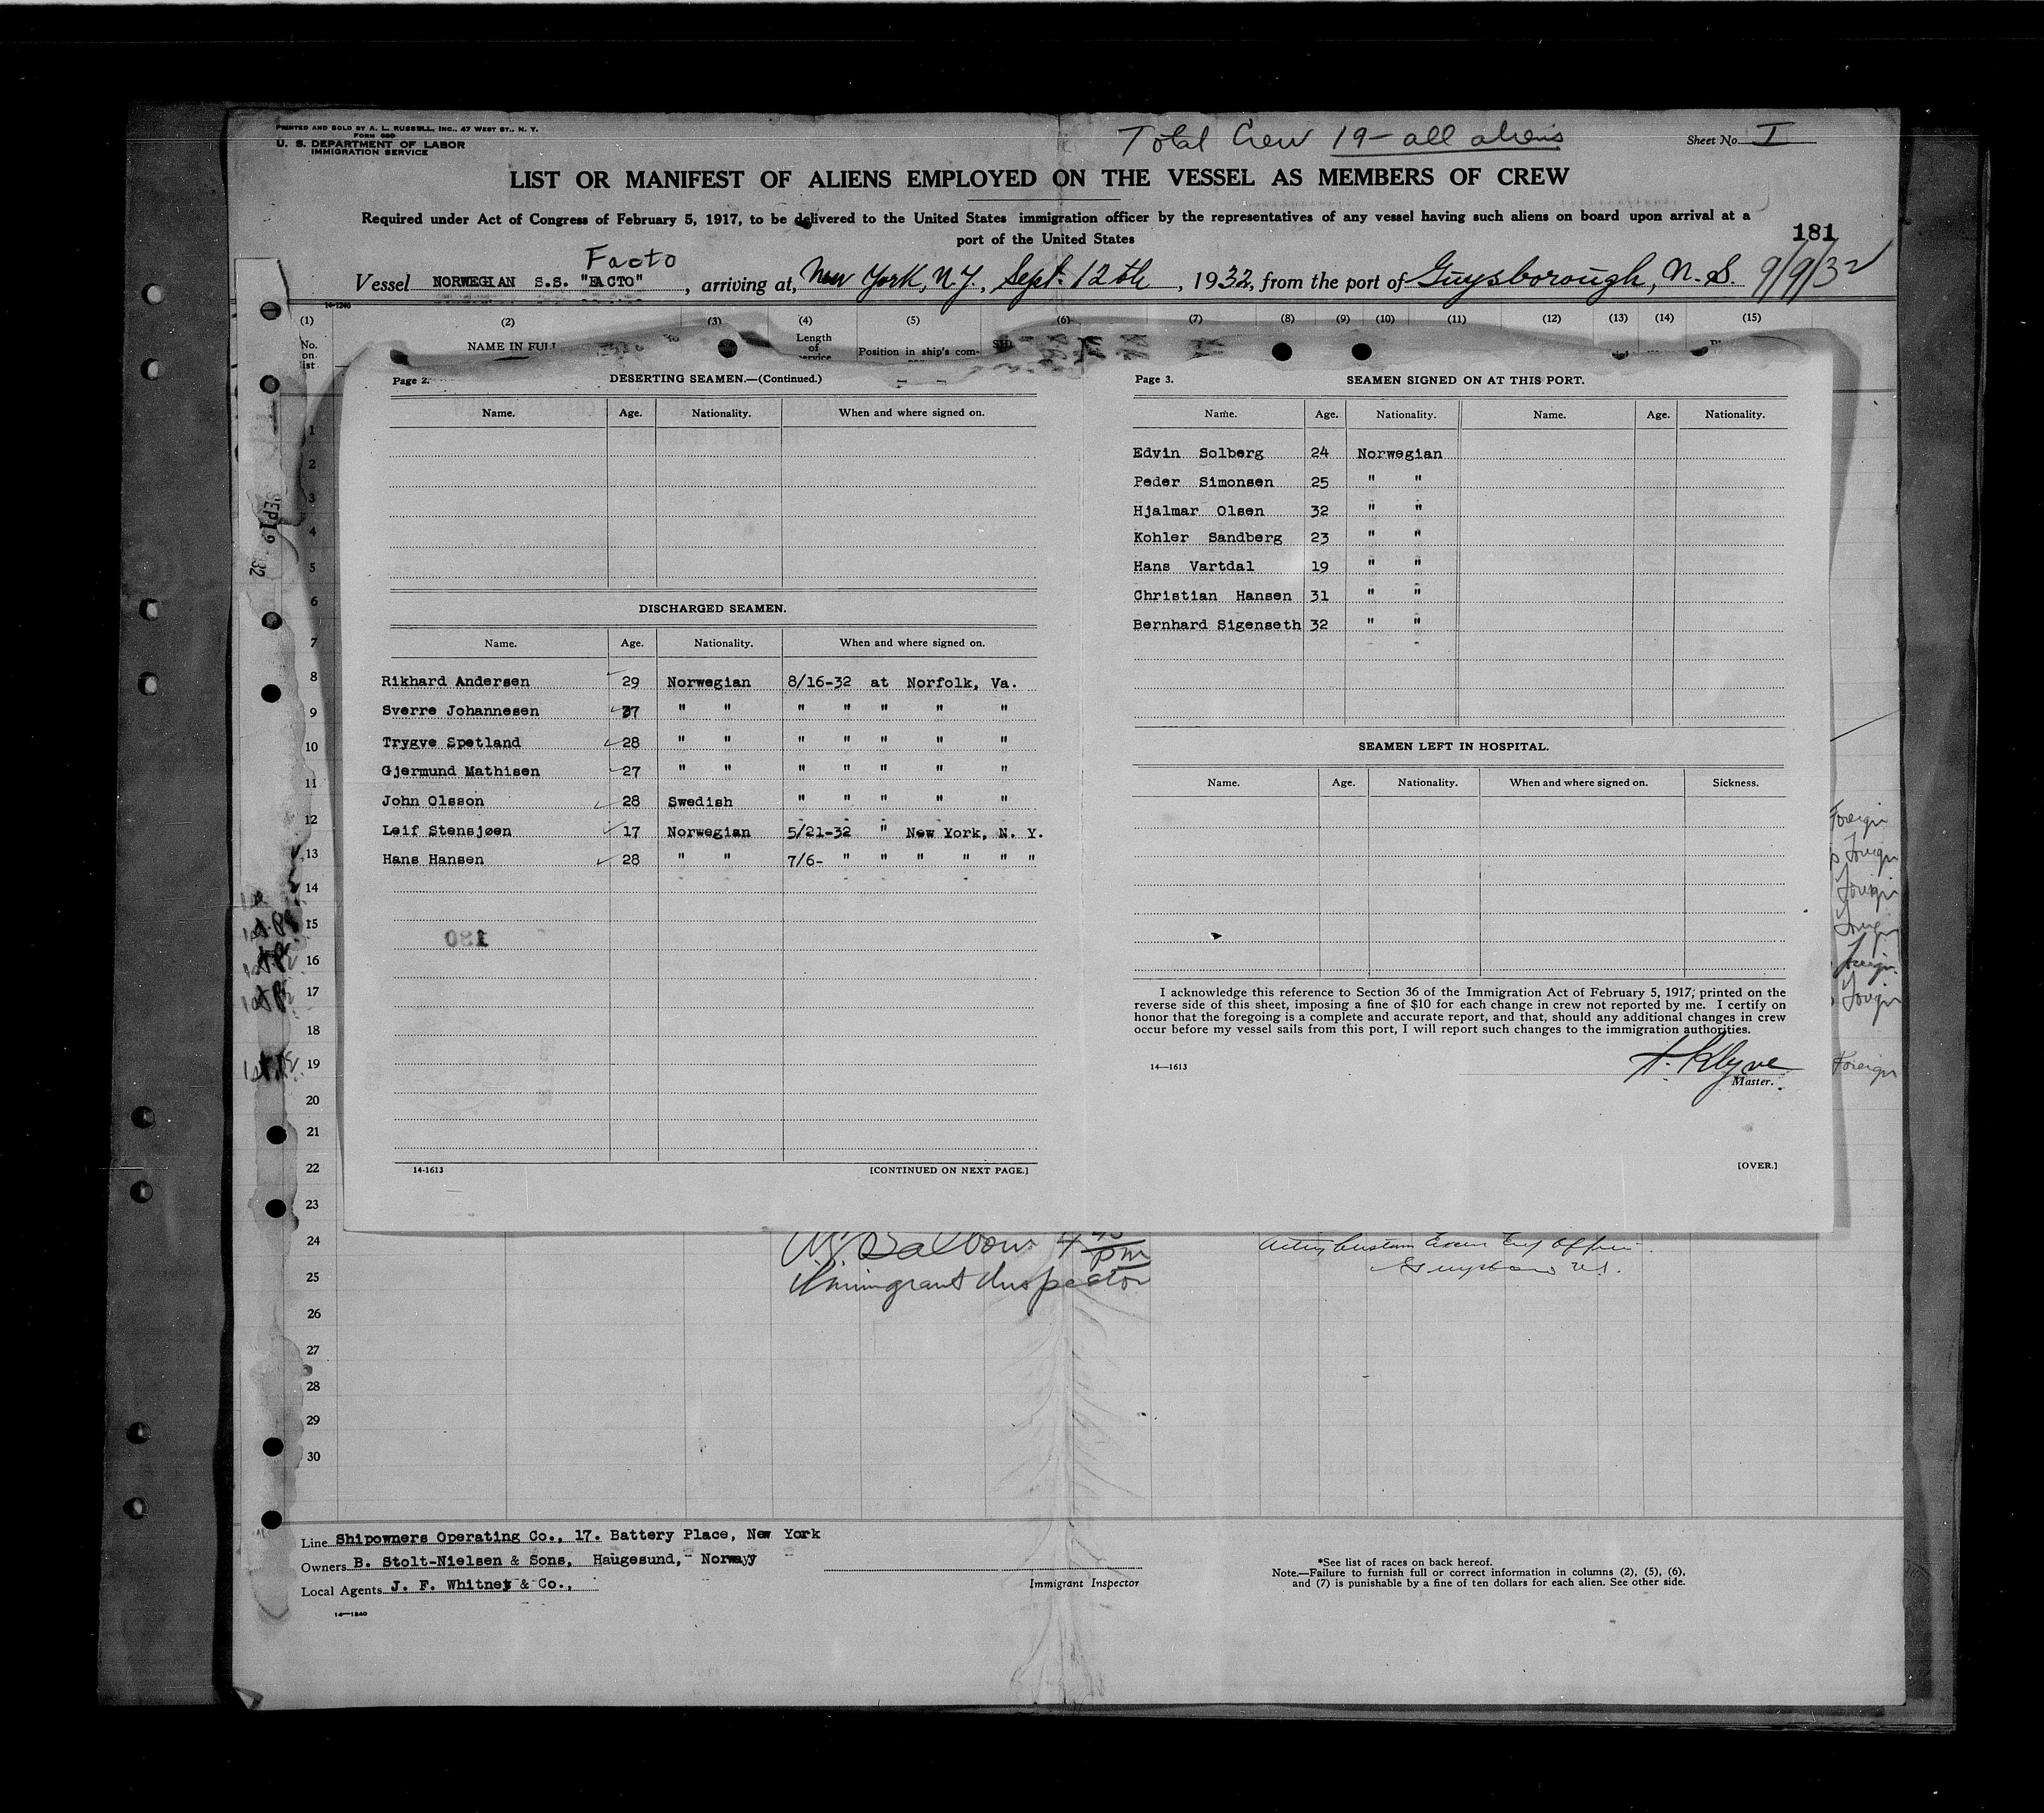 PRINTED AND SOLD BY A. L. RUSSELL, INC., 47 WEST ST., N. Y.
FORM 680
U. S. DEPARTMENT OF LABOR
IMMIGRATION SERVICE
Total Crew 19 - all aliens
Sheet No. I
LIST OR MANIFEST OF ALIENS EMPLOYED ON THE VESSEL AS MEMBERS OF CREW
Required under Act of Congress of February 5, 1917, to be delivered to the United States immigration officer by the representatives of any vessel having such aliens on board upon arrival at a
port of the United States
181
Facto
Vessel NORWEGIAN S.S. "FACTO", arriving at, New York, N.Y., Sept. 12th, 1932, from the port of Guysborough, N. S. 9/9/32
14-1240
(1) (2) (3) (4) (5) (6) (7) (8) (9) (10) (11) (12) (13) (14) (15)
No. on list
NAME IN FULL
Length of service
Position in ship's com-
SEP 19 '32
1
2
3
4
5
6
7
8
9
10
11
12
13
14
15
16
17
18
19
20
21
22
23
24
25
26
27
28
29
30
Page 2. DESERTING SEAMEN.—(Continued.)
Name. Age. Nationality. When and where signed on.
DISCHARGED SEAMEN.
Name. Age. Nationality. When and where signed on.
Rikhard Andersen 29 Norwegian 8/16-32 at Norfolk, Va.
Sverre Johannesen 37 " " " " " " "
Trygve Spetland 28 " " " " " " "
Gjermund Mathisen 27 " " " " " " "
John Olsson 28 Swedish " " " " "
Leif Stensjøen 17 Norwegian 5/21-32 " New York, N. Y.
Hans Hansen 28 " " 7/6- " " " " " "
180
14-1613 [CONTINUED ON NEXT PAGE.]
Page 3. SEAMEN SIGNED ON AT THIS PORT.
Name. Age. Nationality. Name. Age. Nationality.
Edvin Solberg 24 Norwegian
Peder Simonsen 25 " "
Hjalmar Olsen 32 " "
Kohler Sandberg 23 " "
Hans Vartdal 19 " "
Christian Hansen 31 " "
Bernhard Sigenseth 32 " "
SEAMEN LEFT IN HOSPITAL.
Name. Age. Nationality. When and where signed on. Sickness.
I acknowledge this reference to Section 36 of the Immigration Act of February 5, 1917, printed on the
reverse side of this sheet, imposing a fine of $10 for each change in crew not reported by me. I certify on
honor that the foregoing is a complete and accurate report, and that, should any additional changes in crew
occur before my vessel sails from this port, I will report such changes to the immigration authorities.
14—1613
Klyve
Master.
[OVER.]
Foreign
Foreign
Foreign
Foreign
Foreign
Foreign
Foreign
pm
Immigrant Inspector
Line Shipowners Operating Co., 17. Battery Place, New York
Owners B. Stolt-Nielsen & Sons, Haugesund, Norway
Local Agents J. F. Whitney & Co.,
14—1240
Immigrant Inspector
*See list of races on back hereof.
Note.—Failure to furnish full or correct information in columns (2), (5), (6),
and (7) is punishable by a fine of ten dollars for each alien. See other side.